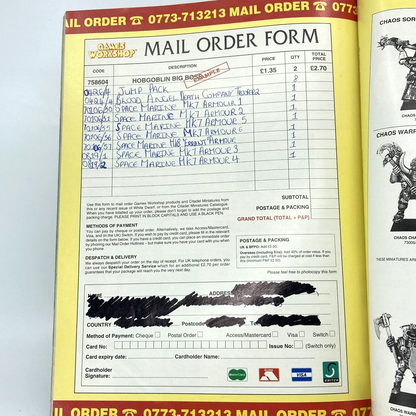 MAIL ORDER ☎ 0773-713213 MAIL ORDER ☎
GAMES WORKSHOP
MAIL ORDER FORM
CODE DESCRIPTION PRICE QTY TOTAL PRICE
758604 HOBGOBLIN BIG BOSS £1.35 2 £2.70
EXAMPLE
JUMP PACK
BLOOD ANGEL DEATH COMPANY TROOPER 1
SPACE MARINE MK7 ARMOUR 1 1
SPACE MARINE MK7 ARMOUR 2 1
SPACE MARINE MK7 ARMOUR 5 1
SPACE MARINE MK7 ARMOUR 6 1
SPACE MARINE MK8 ERRANT ARMOUR 1
SPACE MARINE MK7 ARMOUR 3 1
SPACE MARINE MK7 ARMOUR 4 1
SUBTOTAL
POSTAGE & PACKING
GRAND TOTAL (TOTAL + P&P)
Use this form to mail order Games Workshop products and Citadel Miniatures from
this or any recent issue of White Dwarf, or from the Citadel Miniatures Catalogue.
When you have totalled up your order, please don't forget to add the postage and
packing. PLEASE PRINT IN BLOCK CAPITALS AND USE A BLACK PEN.
METHODS OF PAYMENT
You can pay by cheque or postal order. Alternatively, we take Access/Mastercard,
Visa, and (in the UK) Switch. If you wish to pay by credit card, please fill in the relevant
details on the form below. If you have a credit card, you can place an immediate order
by phoning our Mail Order Hotlines - but make sure you have your card with you
when you phone.
DESPATCH & DELIVERY
We always despatch your order on the day of receipt. For UK telephone orders, you
can use our Special Delivery Service which for an additional £2.70 per order
guarantees that your package will reach you the very next day.
POSTAGE & PACKING
UK & BFPO: Add £2.50
Overseas (including Eire): Add 40% of order value. If you
pay by credit card, P&P will be charged at cost if this is less
than this (minimum P&P £2.50)
Please feel free to photocopy this form
NAME
ADDRESS
COUNTRY
Postcode
Method of Payment: Cheque Postal Order Access/Mastercard Visa Switch
Card No: Issue No: (Switch only)
Card expiry date: Cardholder Name:
Cardholder
Signature:
MasterCard
VISA
SWITCH
MAIL ORDER ☎ 0773-713213 MAIL ORDER ☎
CHAOS SOR
CHAOS WARR
THESE MINIATURES ARE
CHAOS WARR